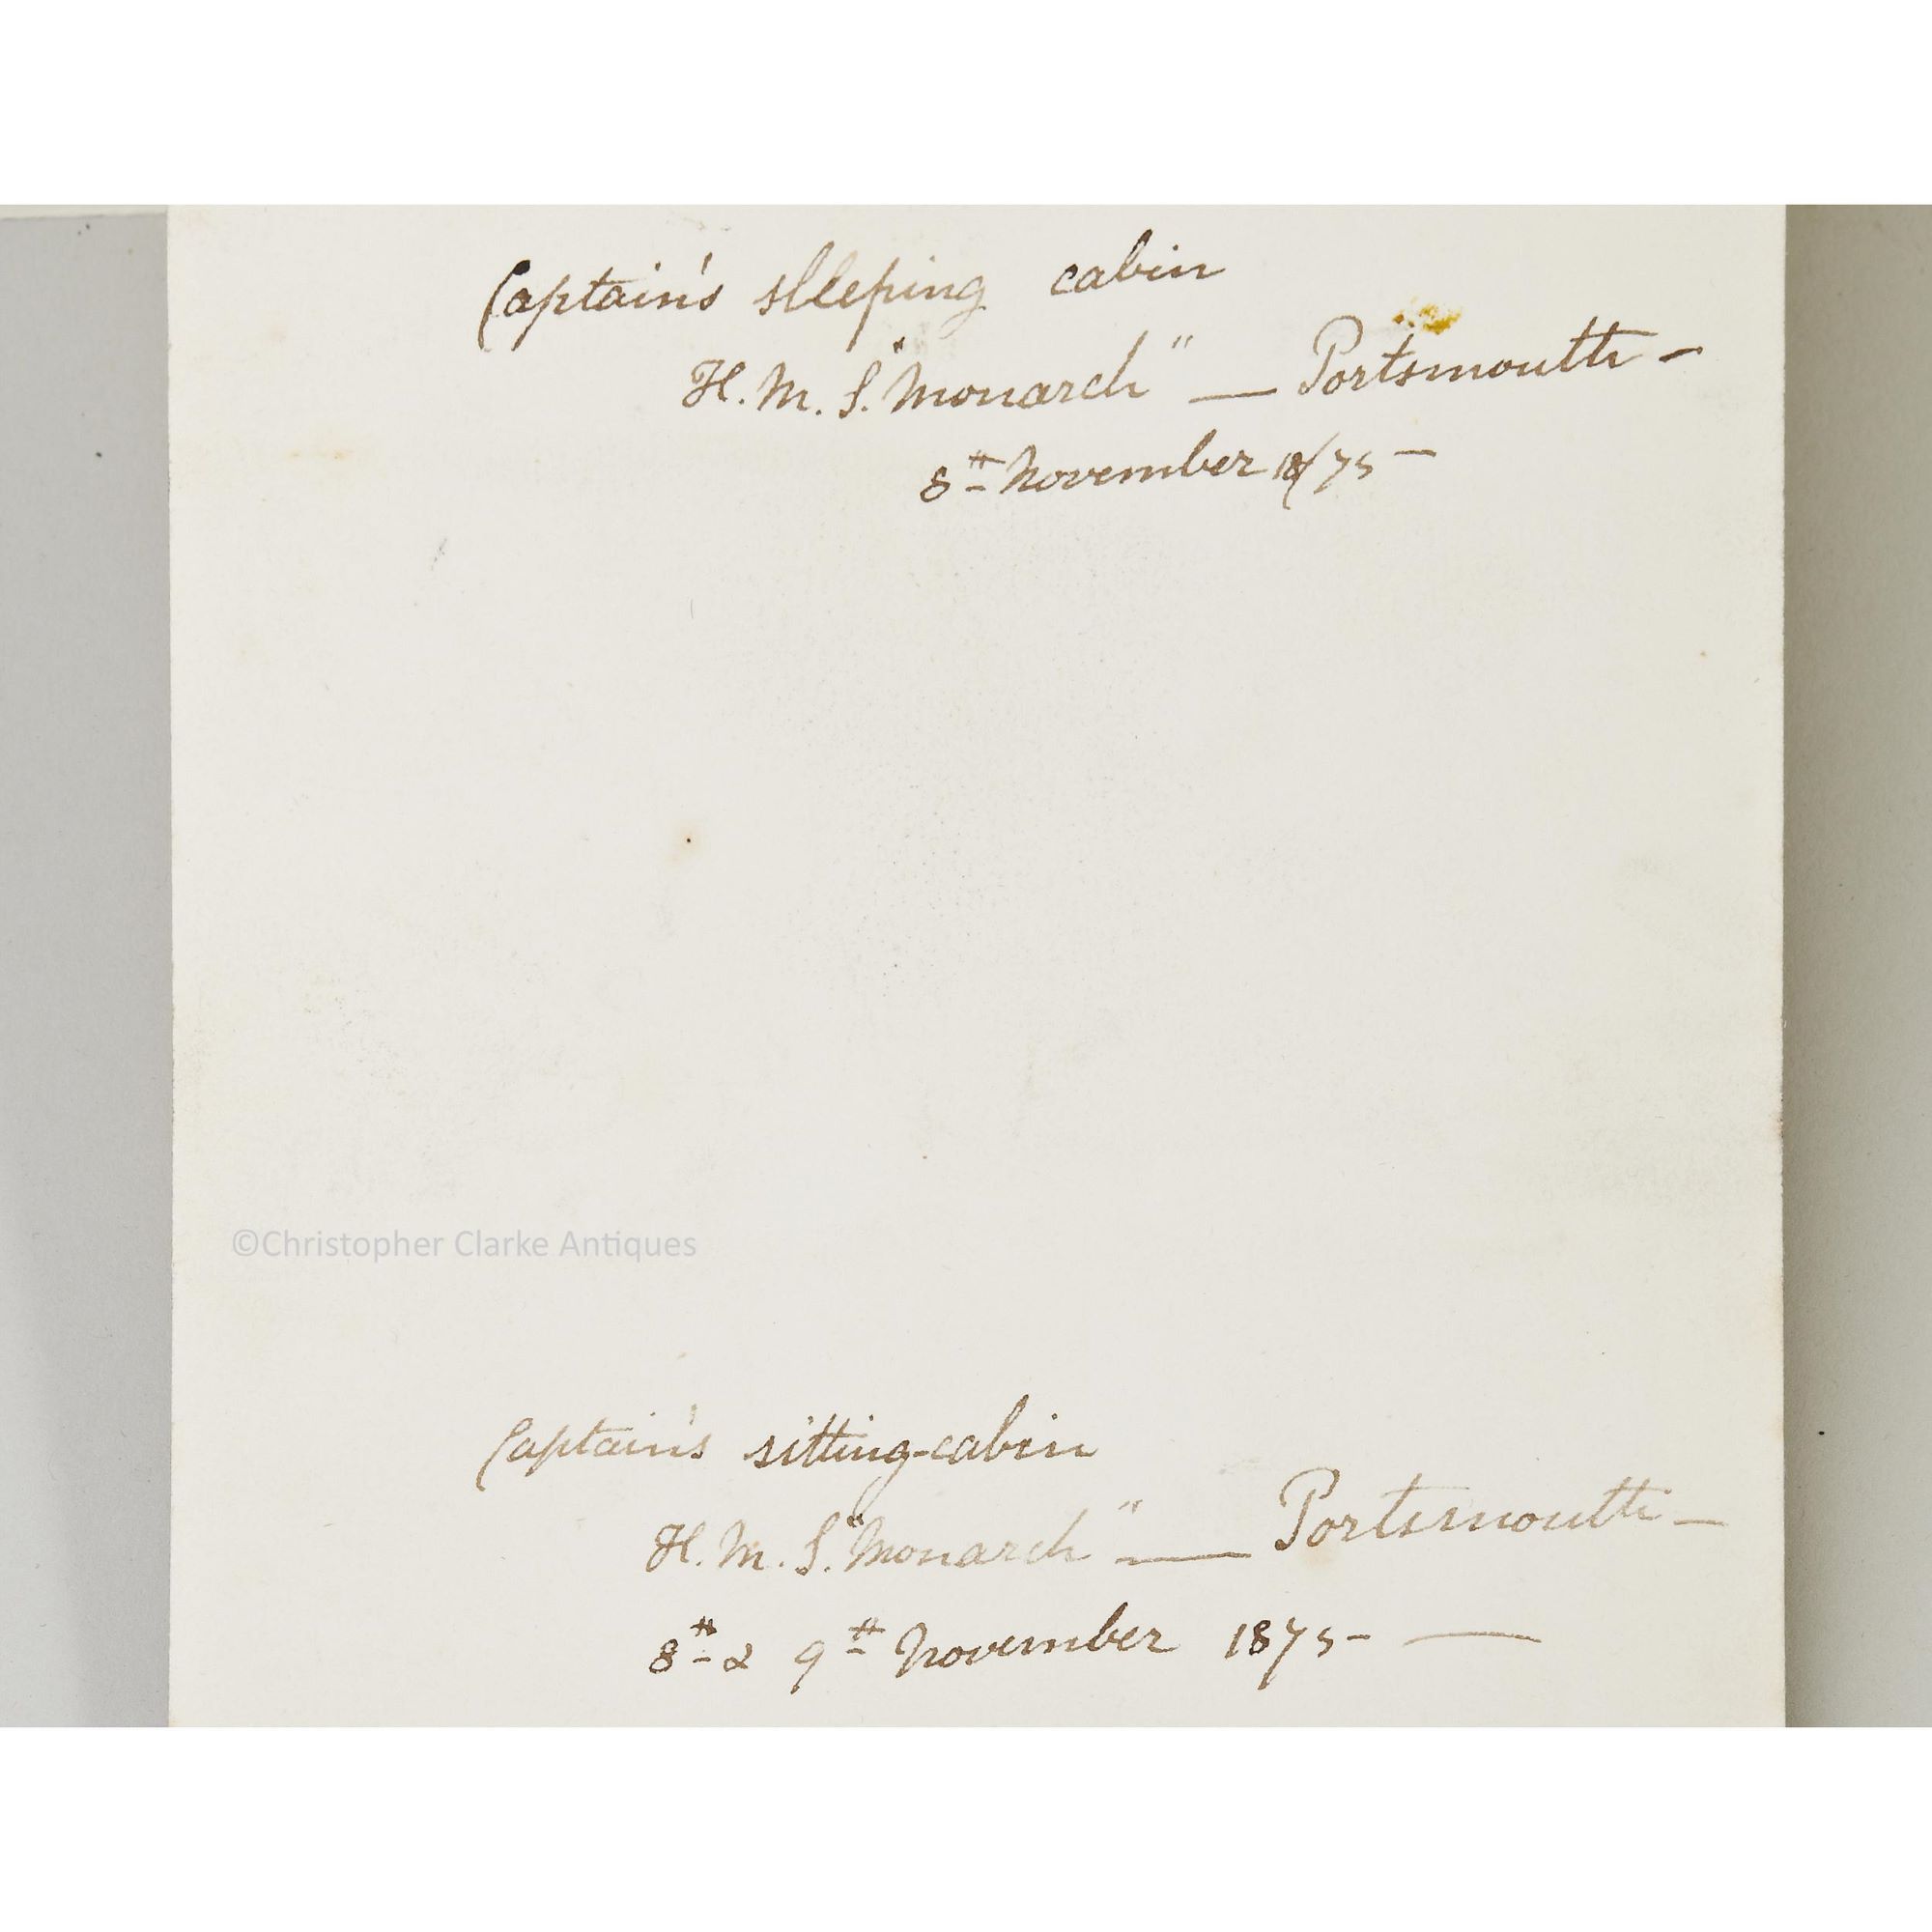 Captain's slleping cabin
H.M.S. "Monarch" — Portsmouth —
8th November 1875 —
©Christopher Clarke Antiques
Captain's sitting-cabin
H.M.S. "Monarch" — Portsmouth —
8th & 9th November 1875 - —